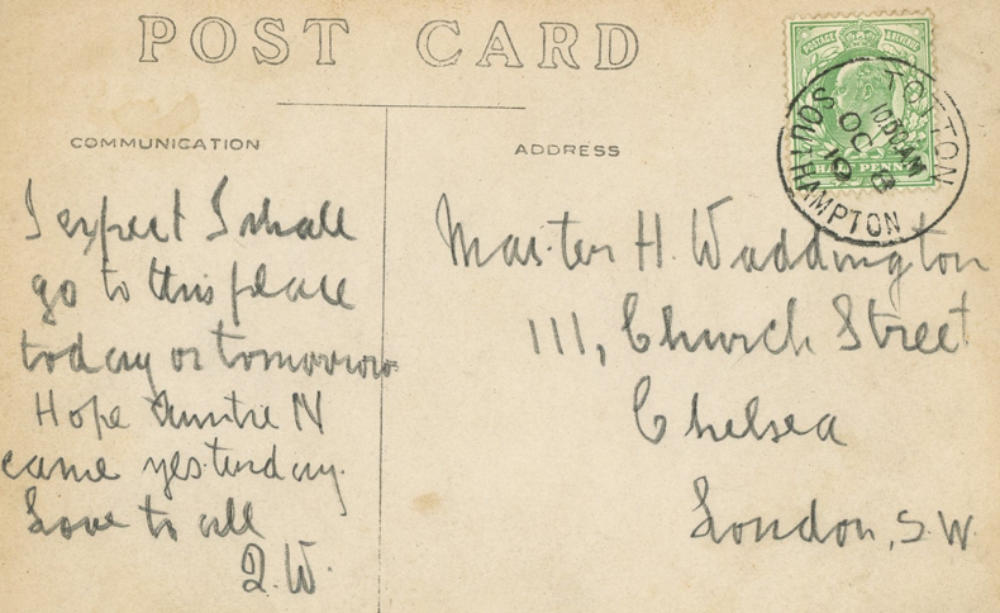 POST CARD
COMMUNICATION
I expect I shall
go to this place
today or tomorrow
Hope Auntie N
came yesterday.
Love to all
D.W.
ADDRESS
Master H. Waddington
111, Church Street
Chelsea
London, S.W.
POSTAGE REVENUE
HALF PENNY
TOTTON
10.30AM
OC 8
10
SOUTHAMPTON